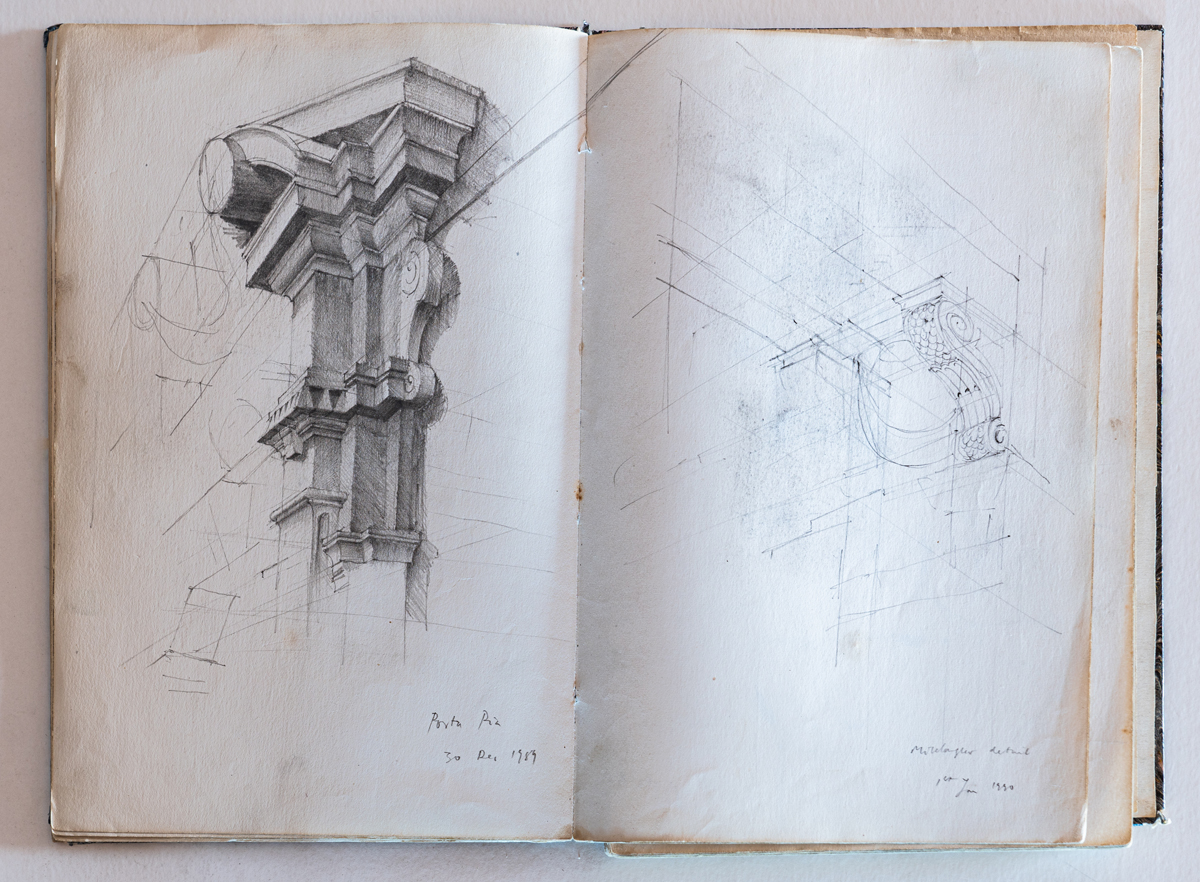 Porta Pia
30 Dec 1989
Michelangelo detail
1st Jan 1990